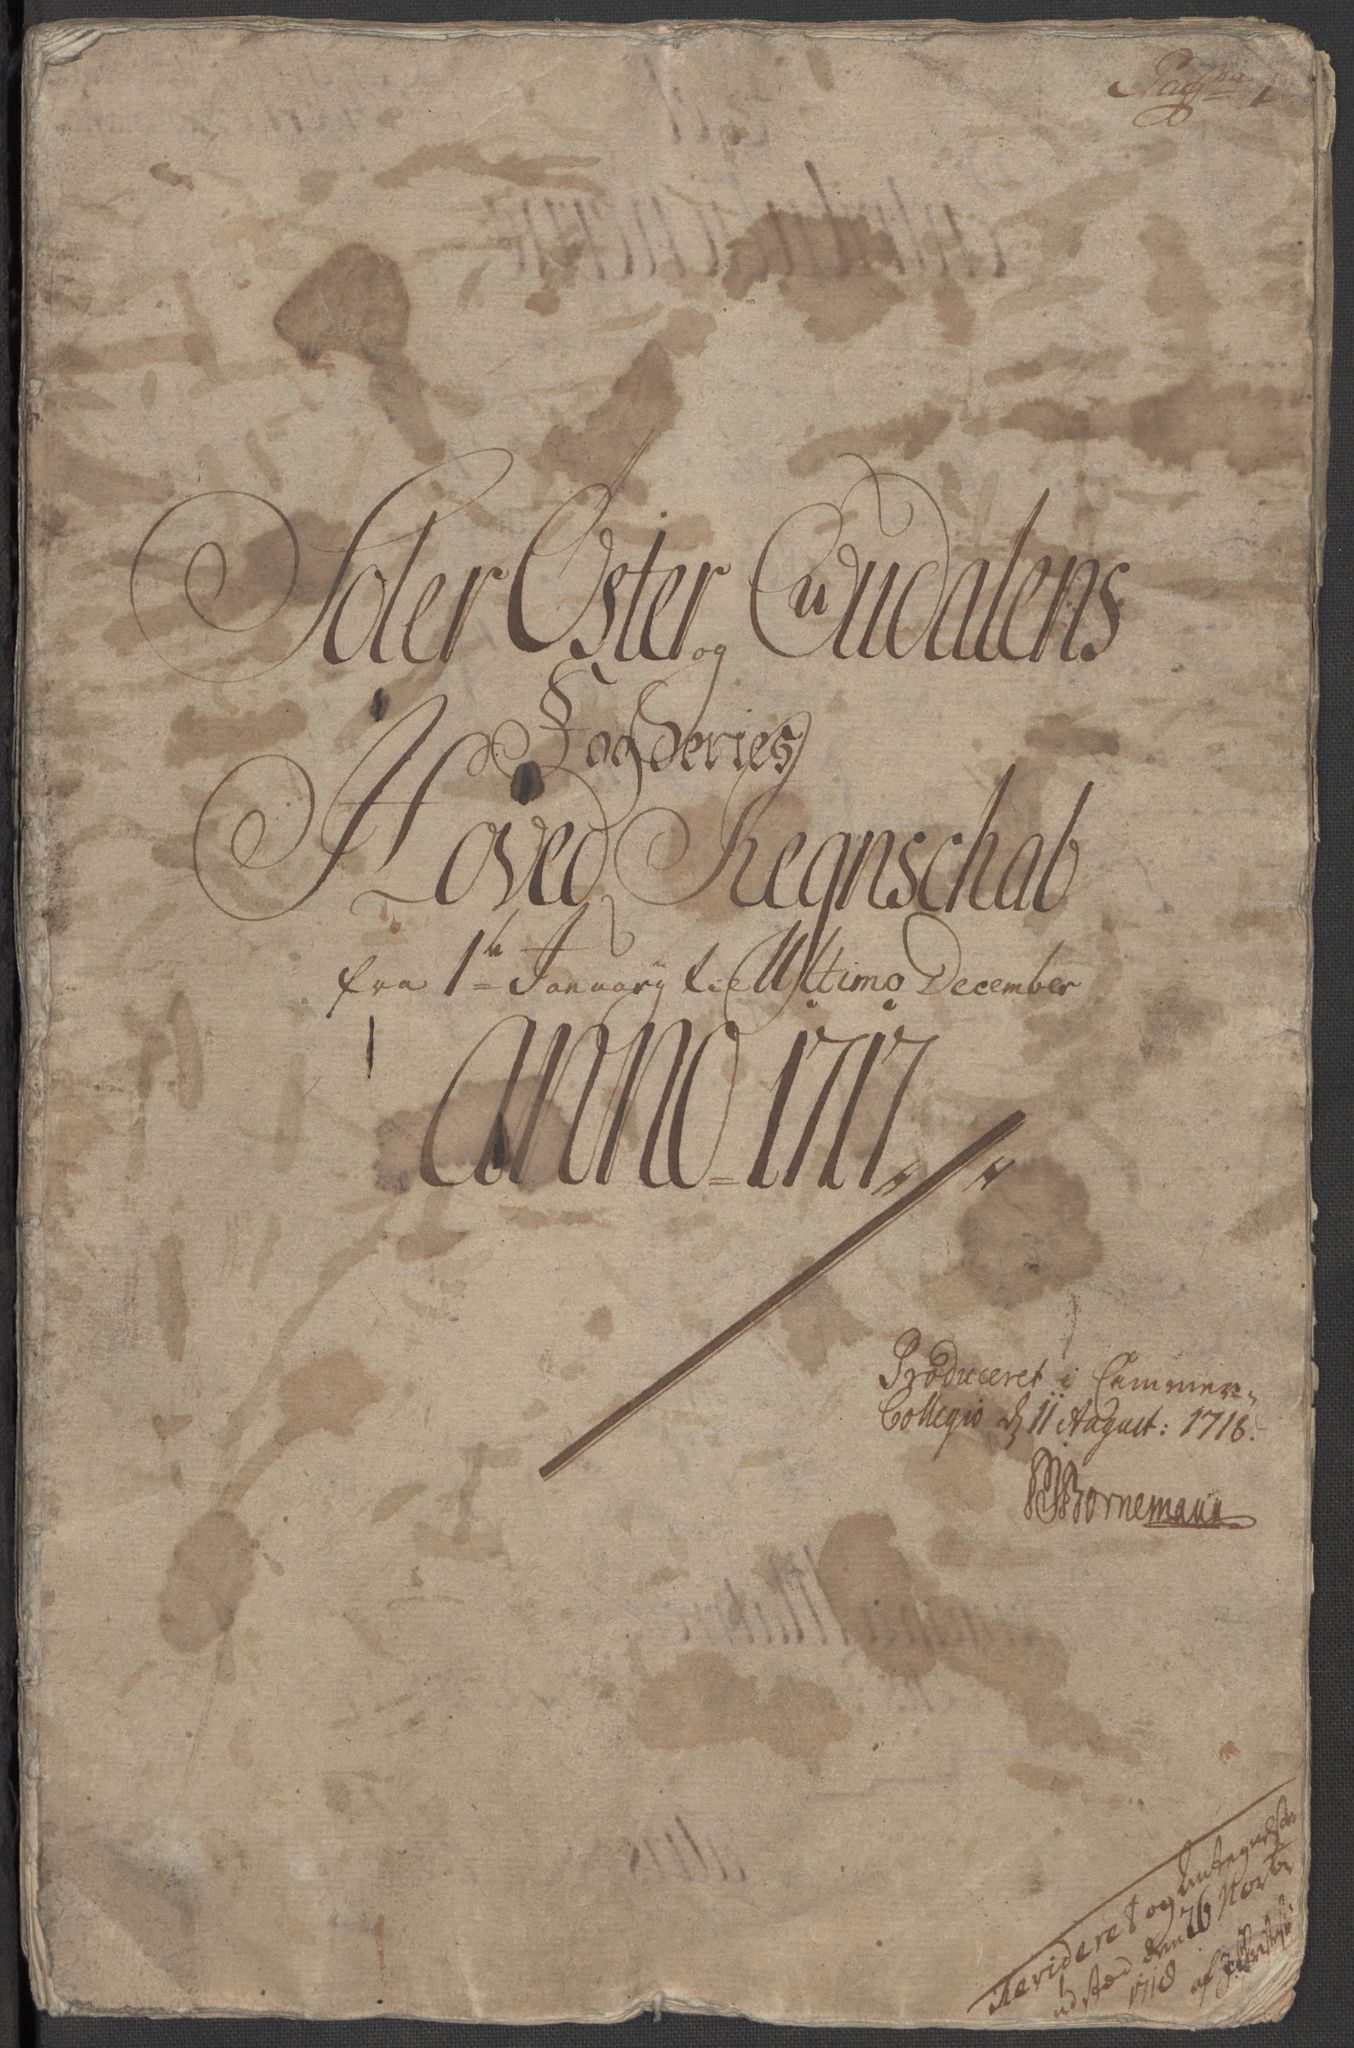 Pag: 1
Soler Øster og Gudalens
Fogderies
Hoved Regnschab
fra 1te January til Ultimo December
Anno = 1717
Produceret i Cammer-
Collegio d 11 August: 1718.
Bornemann
Revideret og
udsted den 26 Novbr
1718 af